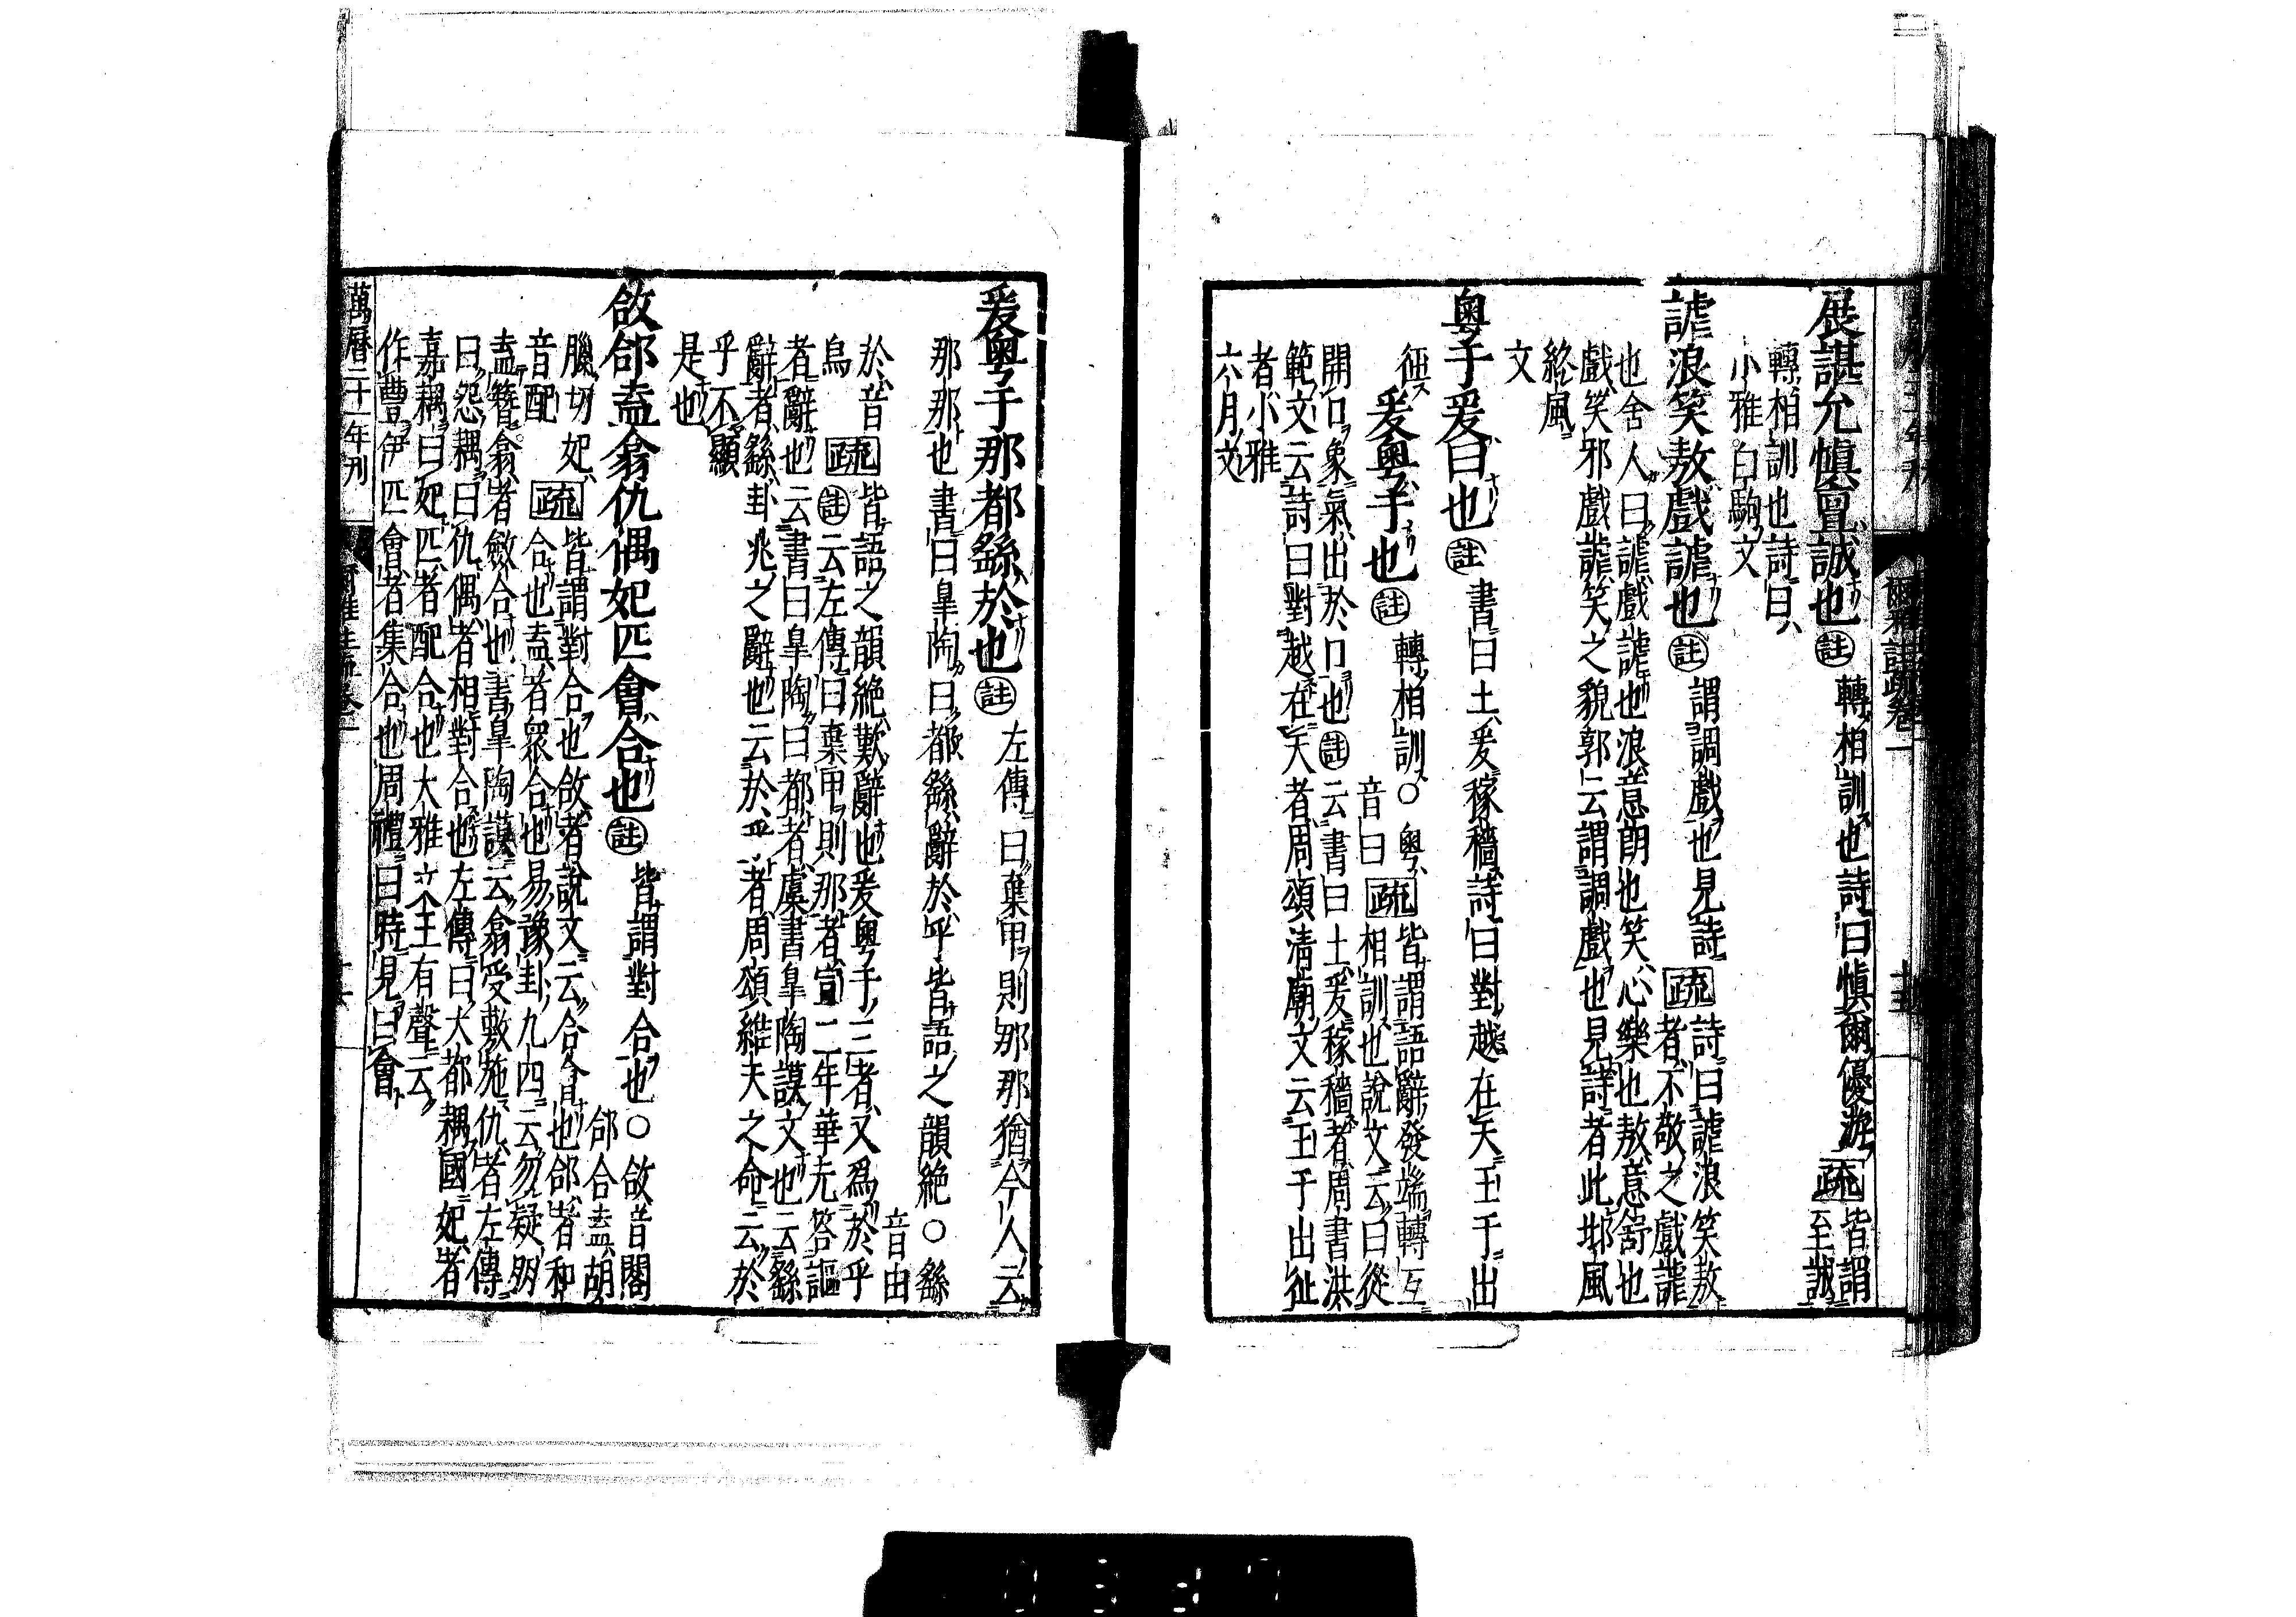 爾雅註疏卷一
展諶允愼亶誠也註轉相訓也詩曰愼爾優游疏皆謂
至誠
轉相訓也詩曰
小雅白駒文
謔浪笑敖戲謔也註謂調戲也見詩疏詩曰謔浪笑敖
者不敬之戲謔
也舍人曰謔戲謔也浪意朗也笑心樂也敖意舒也
戲笑邪戲謔笑之貌郭云謂調戲也見詩者此邶風
終風
文
粵于爰曰也註書曰土爰稼穡詩曰對越在天王于出
征
爰粵于也註轉相訓○粵音曰疏皆謂語辭發端轉互
相訓也說文云曰從
開口象氣出於口也註云書曰土爰稼穡者周書洪
範文云詩曰對越在天者周頌清廟文云王于出征
者小雅
六月文
爰粵于那都繇於也註左傳曰棄甲則那那猶今人云
那那也書曰皐陶曰都繇辭於乎皆語之韻絶○繇
音由
於音
烏疏皆語之韻絶歎辭也爰粵于三者又爲於乎
註云左傳曰棄甲則那者宣二年華元答謳
者辭也云書曰皐陶曰都者虞書皐陶謨文也云繇
辭者繇卦兆之辭也云於乎者周頌維天之命云於
乎不顯
是也
敆郃盍翕仇偶妃匹會合也註皆謂對合也○敆音閤
郃合盍胡
臘切妃
音配疏皆謂對合也敆者說文云合會也郃者和
合也盍者衆合也易豫卦九四云勿疑朋
盍簪翕者斂合也書皐陶謨云翕受敷施仇者左傳
曰怨耦曰仇偶者相對合也左傳曰大都耦國妃者
嘉耦曰妃匹者配合也大雅文王有聲云
作豐伊匹會者集合也周禮曰時見曰會
萬曆二十一年刊